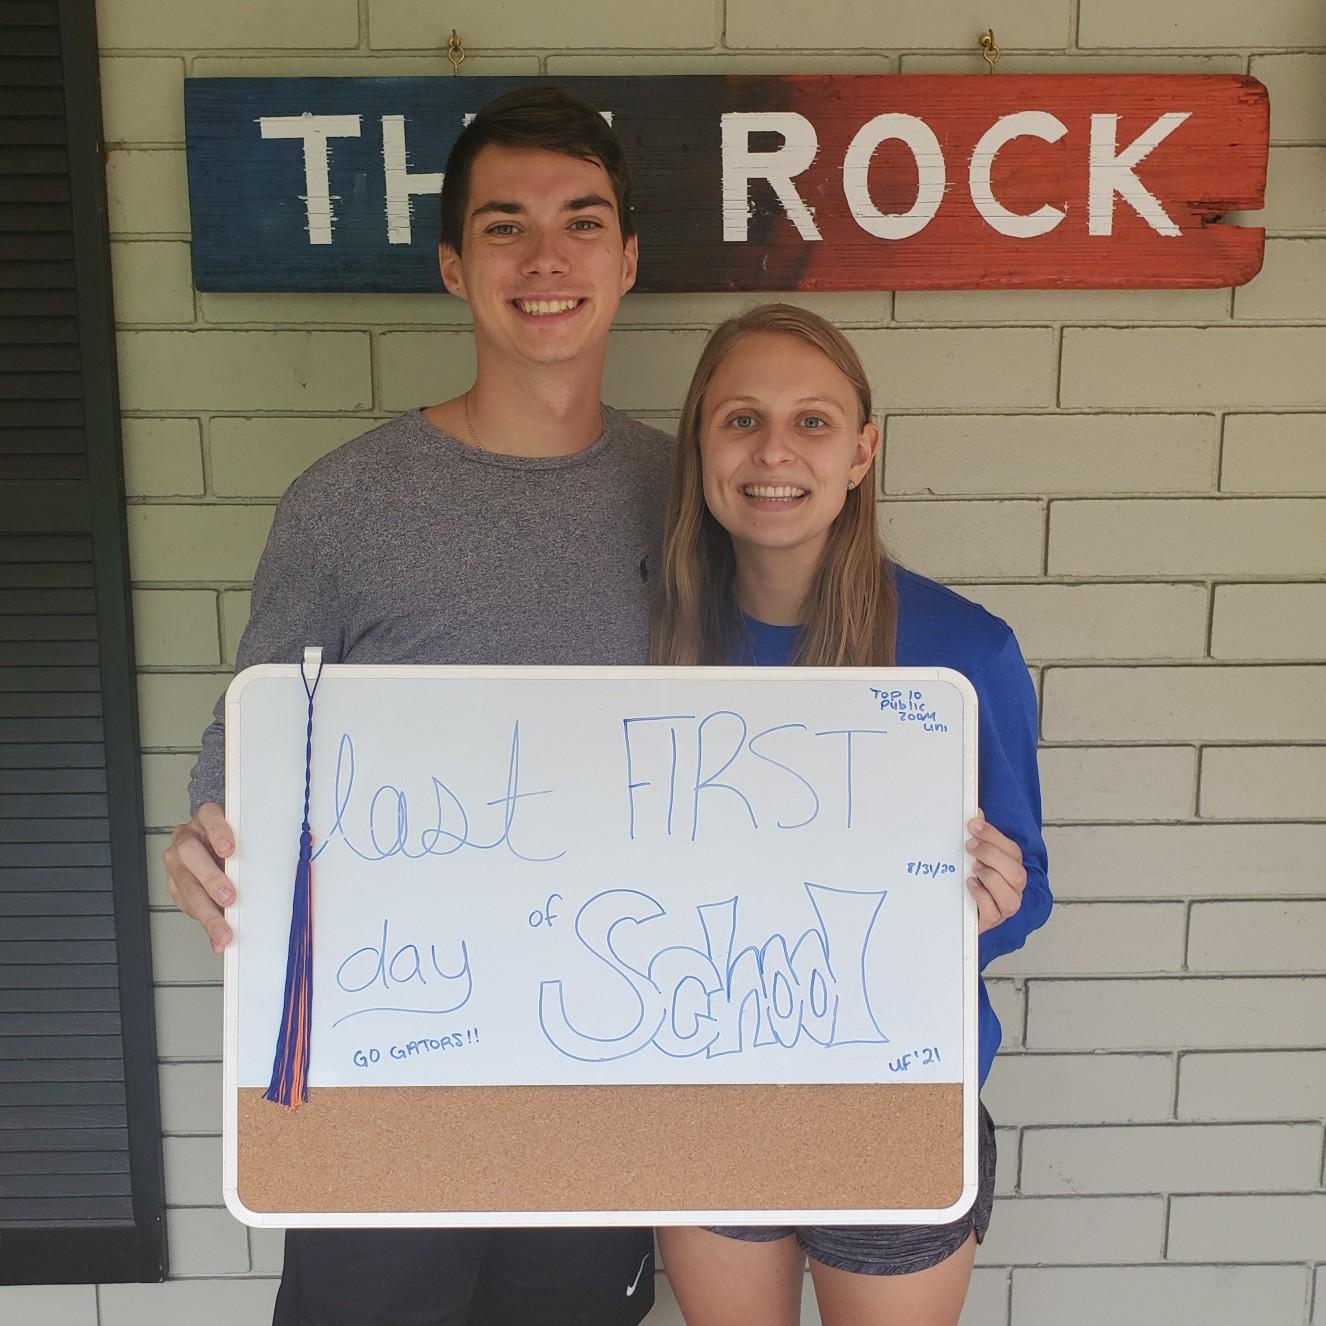 TH ROCK
Top 10
Public
ZOOM
uni
last FIRST
8/31/20
day of School
GO GATORS!!
UF '21